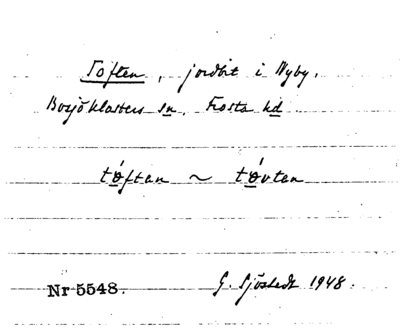 Toften, jordbit i Nyby,
Bosjöklosters sn, Frosta hd
tǿftan ~ tǿvtan
Nr 5548. G. Sjöstedt 1948.